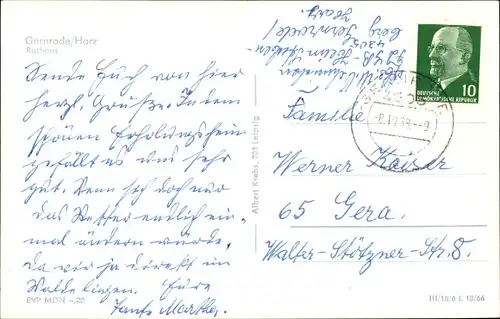 Gernrode/Harz
Rathaus
Sende Euch von hier
herzl. Grüße. In dem
schönen Erholungsheim
gefällt es uns sehr
gut. Wenn sich doch nur
das Wetter endlich ein-
mal ändern würde,
da wir ja direkt im
Walde liegen. Eure
Tante Martha.
EVP MDN -,20
Albert Krebs, 703 Leipzig
4305
Harz
DEUTSCHE
DEMOKRATISCHE REPUBLIK
10
Familie
Werner Kaiser
65 Gera.
Walter-Stötzner-Str. 8.
III/18/6 L 18/66